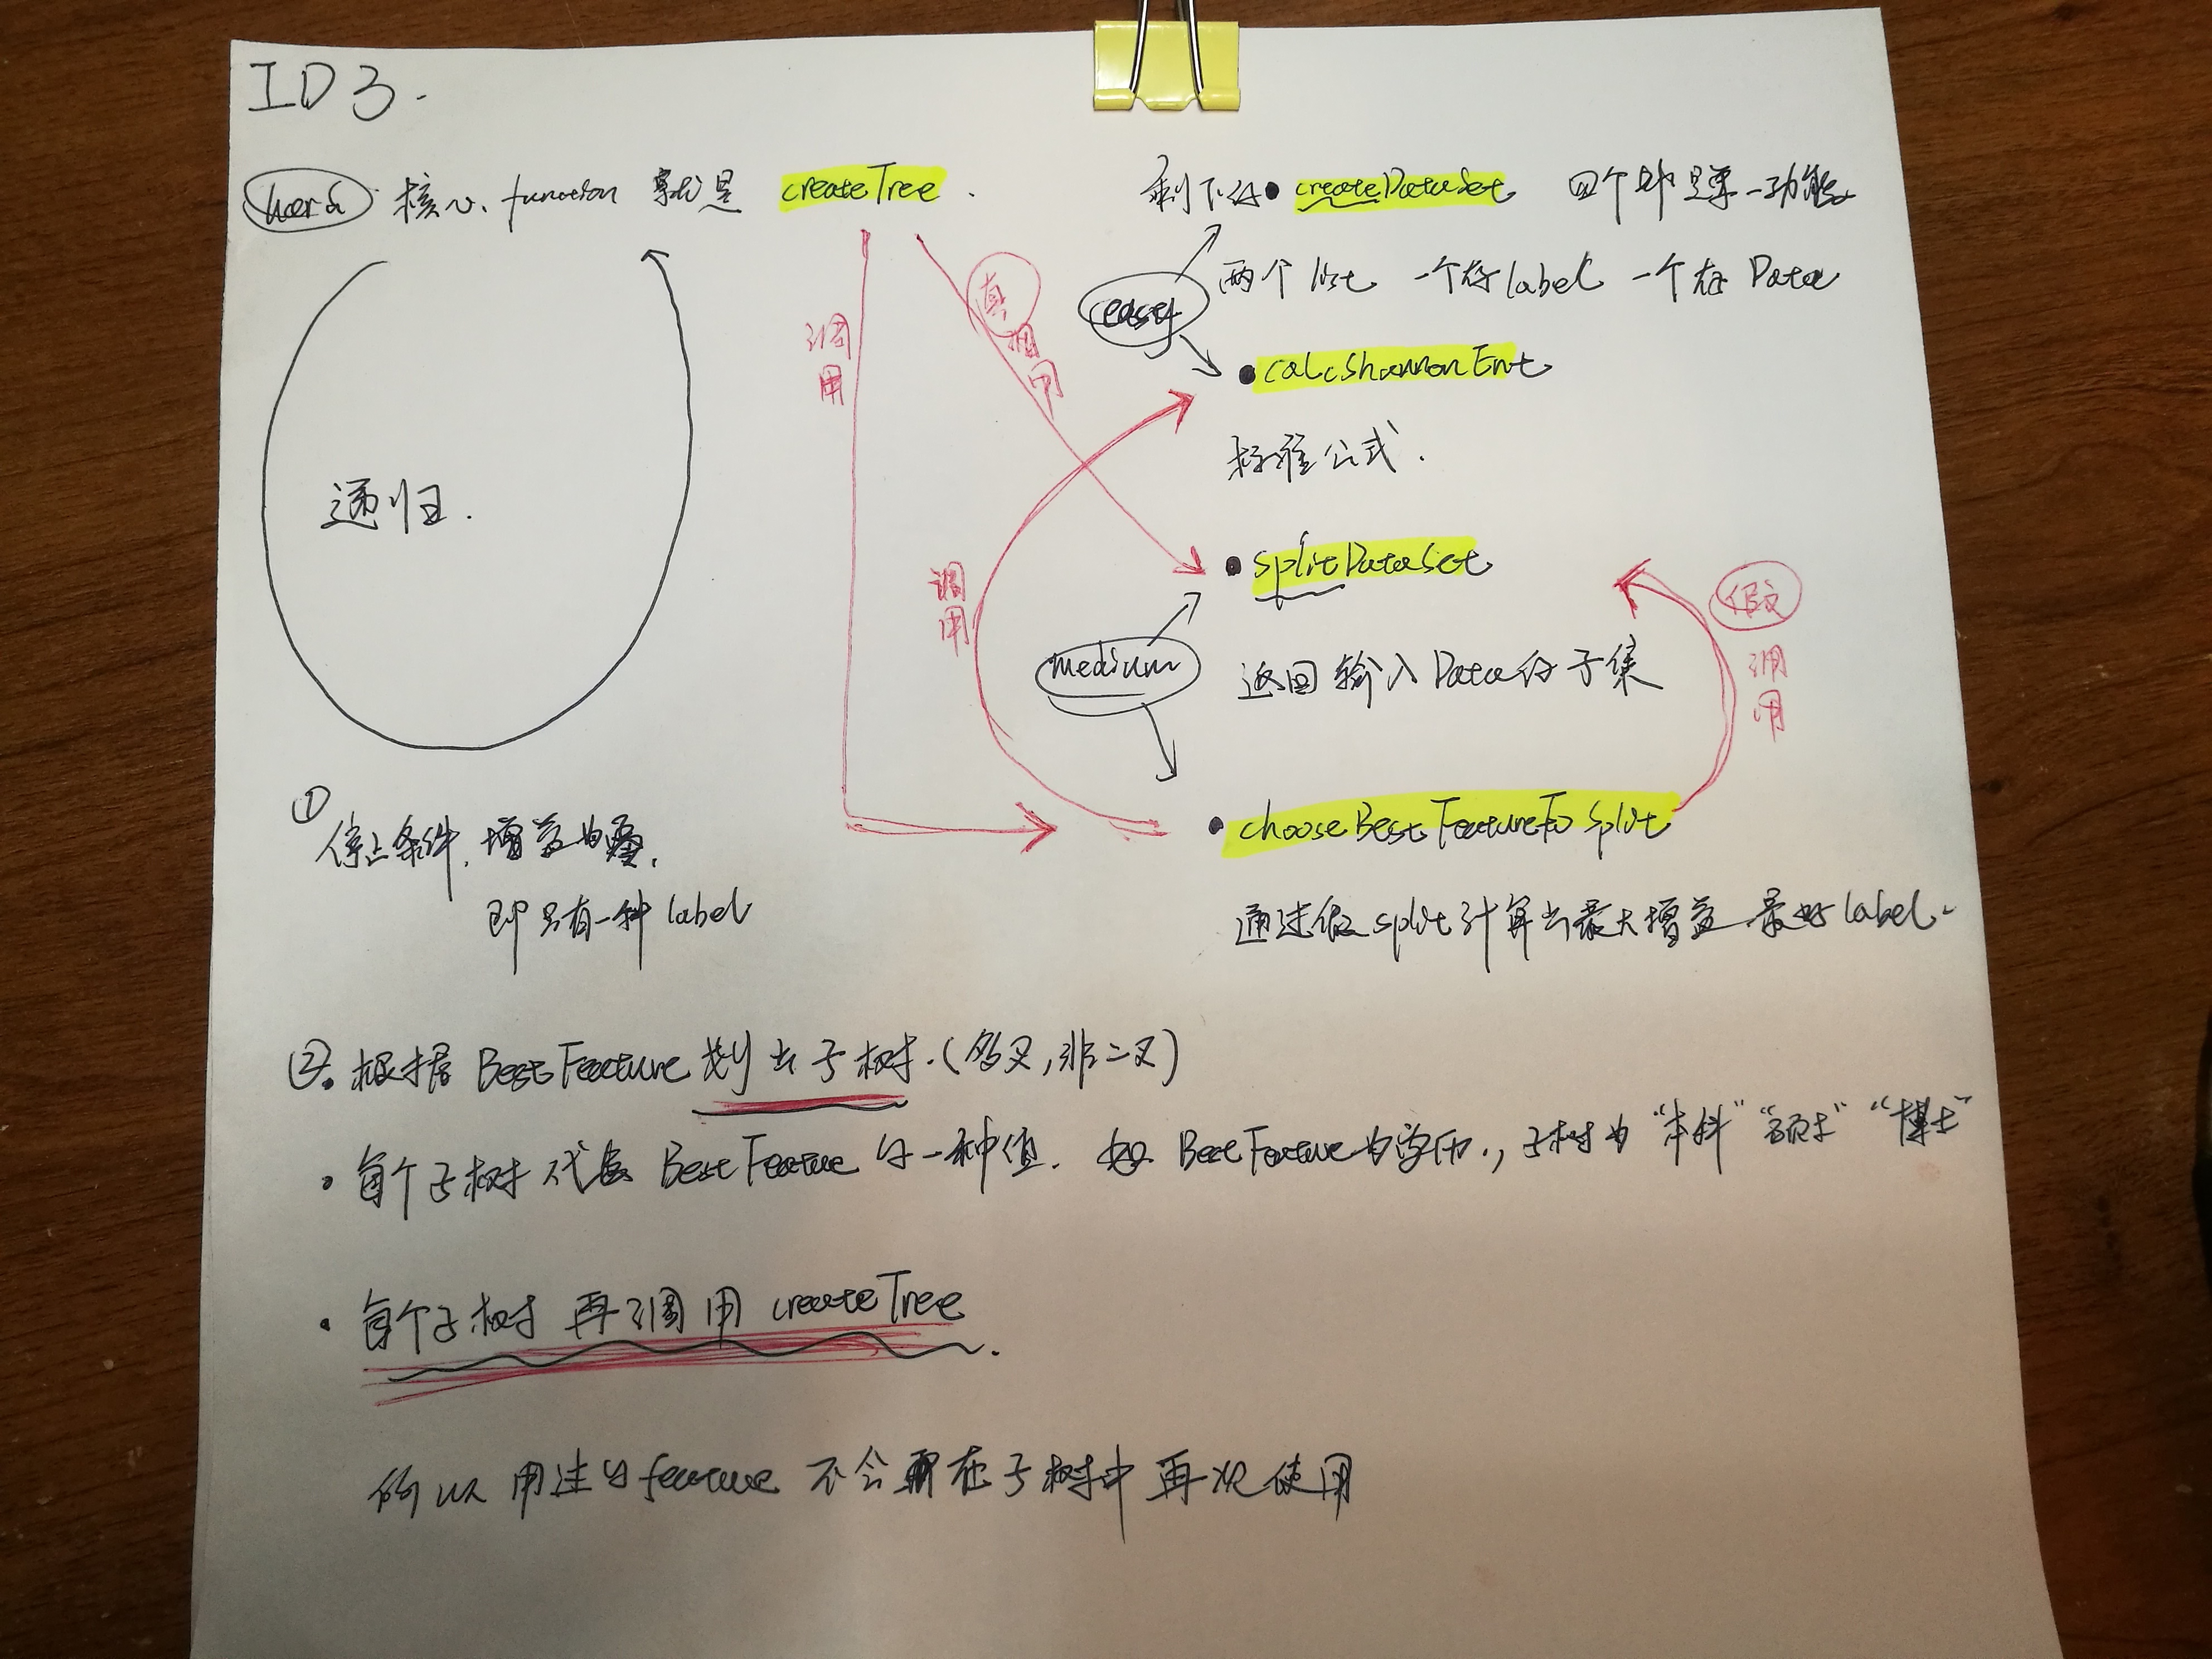 ID3.
hard 核心 function 就是 createTree.
剩下的 • createDataSet 四个都是单一功能
easy
两个 list 一个存label 一个存 Data
调用
真调用
• calcShannonEnt
标准公式.
递归.
• splitDataSet
假调用
调用
medium
返回输入Data的子集
• chooseBestFeatureToSplit
通过假split计算出最大增益 最好label.
① 停止条件, 增益为零,
即只有一种label
②. 根据 BestFeature 划出子树.(多叉,非二叉)
• 每个子树代表 BestFeature 的一种值. 如 BestFeature为学历., 子树为 "本科" "硕士" "博士"
• 每个子树 再调用 createTree.
所以 用过的feature 不会在子树中再次使用